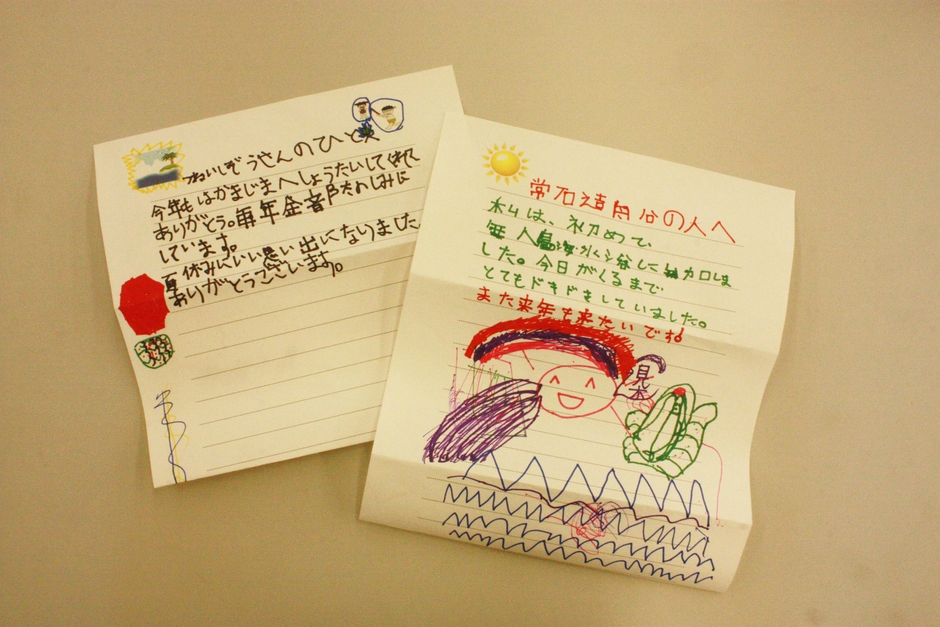 つねいしぞうせんのひとへ
今年もはかまじまへしょうたいしてくれて
ありがとう。毎年全部たのしみに
しています。
夏休みにいい思い出になりました
ありがとうございます。
常石造船の人へ
私は、初めて、
無人島海水浴に参加しま
した。今日がくるまで
とてもドキドキしていました。
また来年も来たいです!